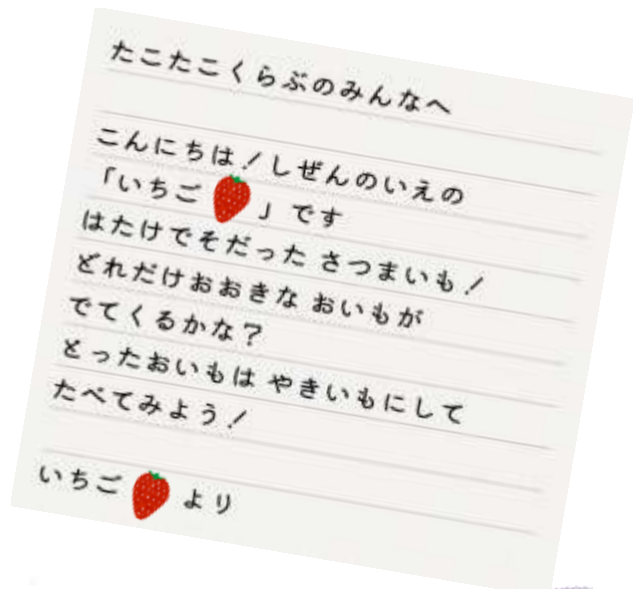 たこたこくらぶのみんなへ
こんにちは！しぜんのいえの
「いちご🍓」です
はたけでそだった さつまいも！
どれだけおおきな おいもが
でてくるかな？
とったおいもは やきいもにして
たべてみよう！
いちご🍓より